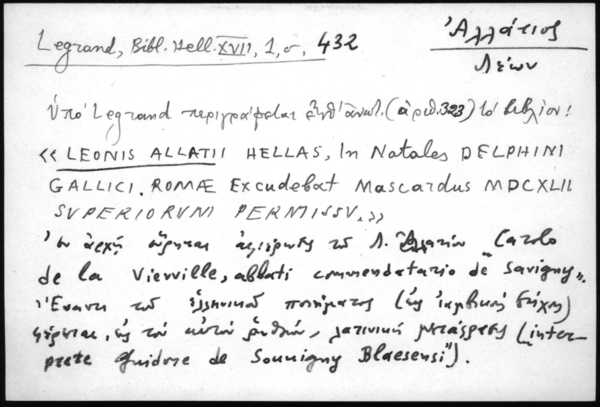 Legrand, Bibl. Hell. XVII, 1, σ, 432
Ἀλλάτιος
Λέων
Ὑπό Legrand περιγράφεται ἐνθ' ἀνωτ. (ἀριθ. 323) τό βιβλίον:
«LEONIS ALLATII HELLAS, In Natales DELPHINI
GALLICI. ROMÆ Excudebat Mascardus MDCXLII
SUPERIORUM PERMISSU.»
Ἐν ἀρχῇ ἀφιέρωσις τοῦ Λ. Ἀλλατίου "Carolo
de la Vieuville, abbati commendatario de Savigny".
Ἔναντι τοῦ ἑλληνικοῦ ποιήματος (εἰς ἰαμβικούς στίχους)
φέρεται, εἰς τόν αὐτόν ῥυθμόν, λατινική μετάφρασις (inter-
prete Guidone de Souvigny Blaesensi").